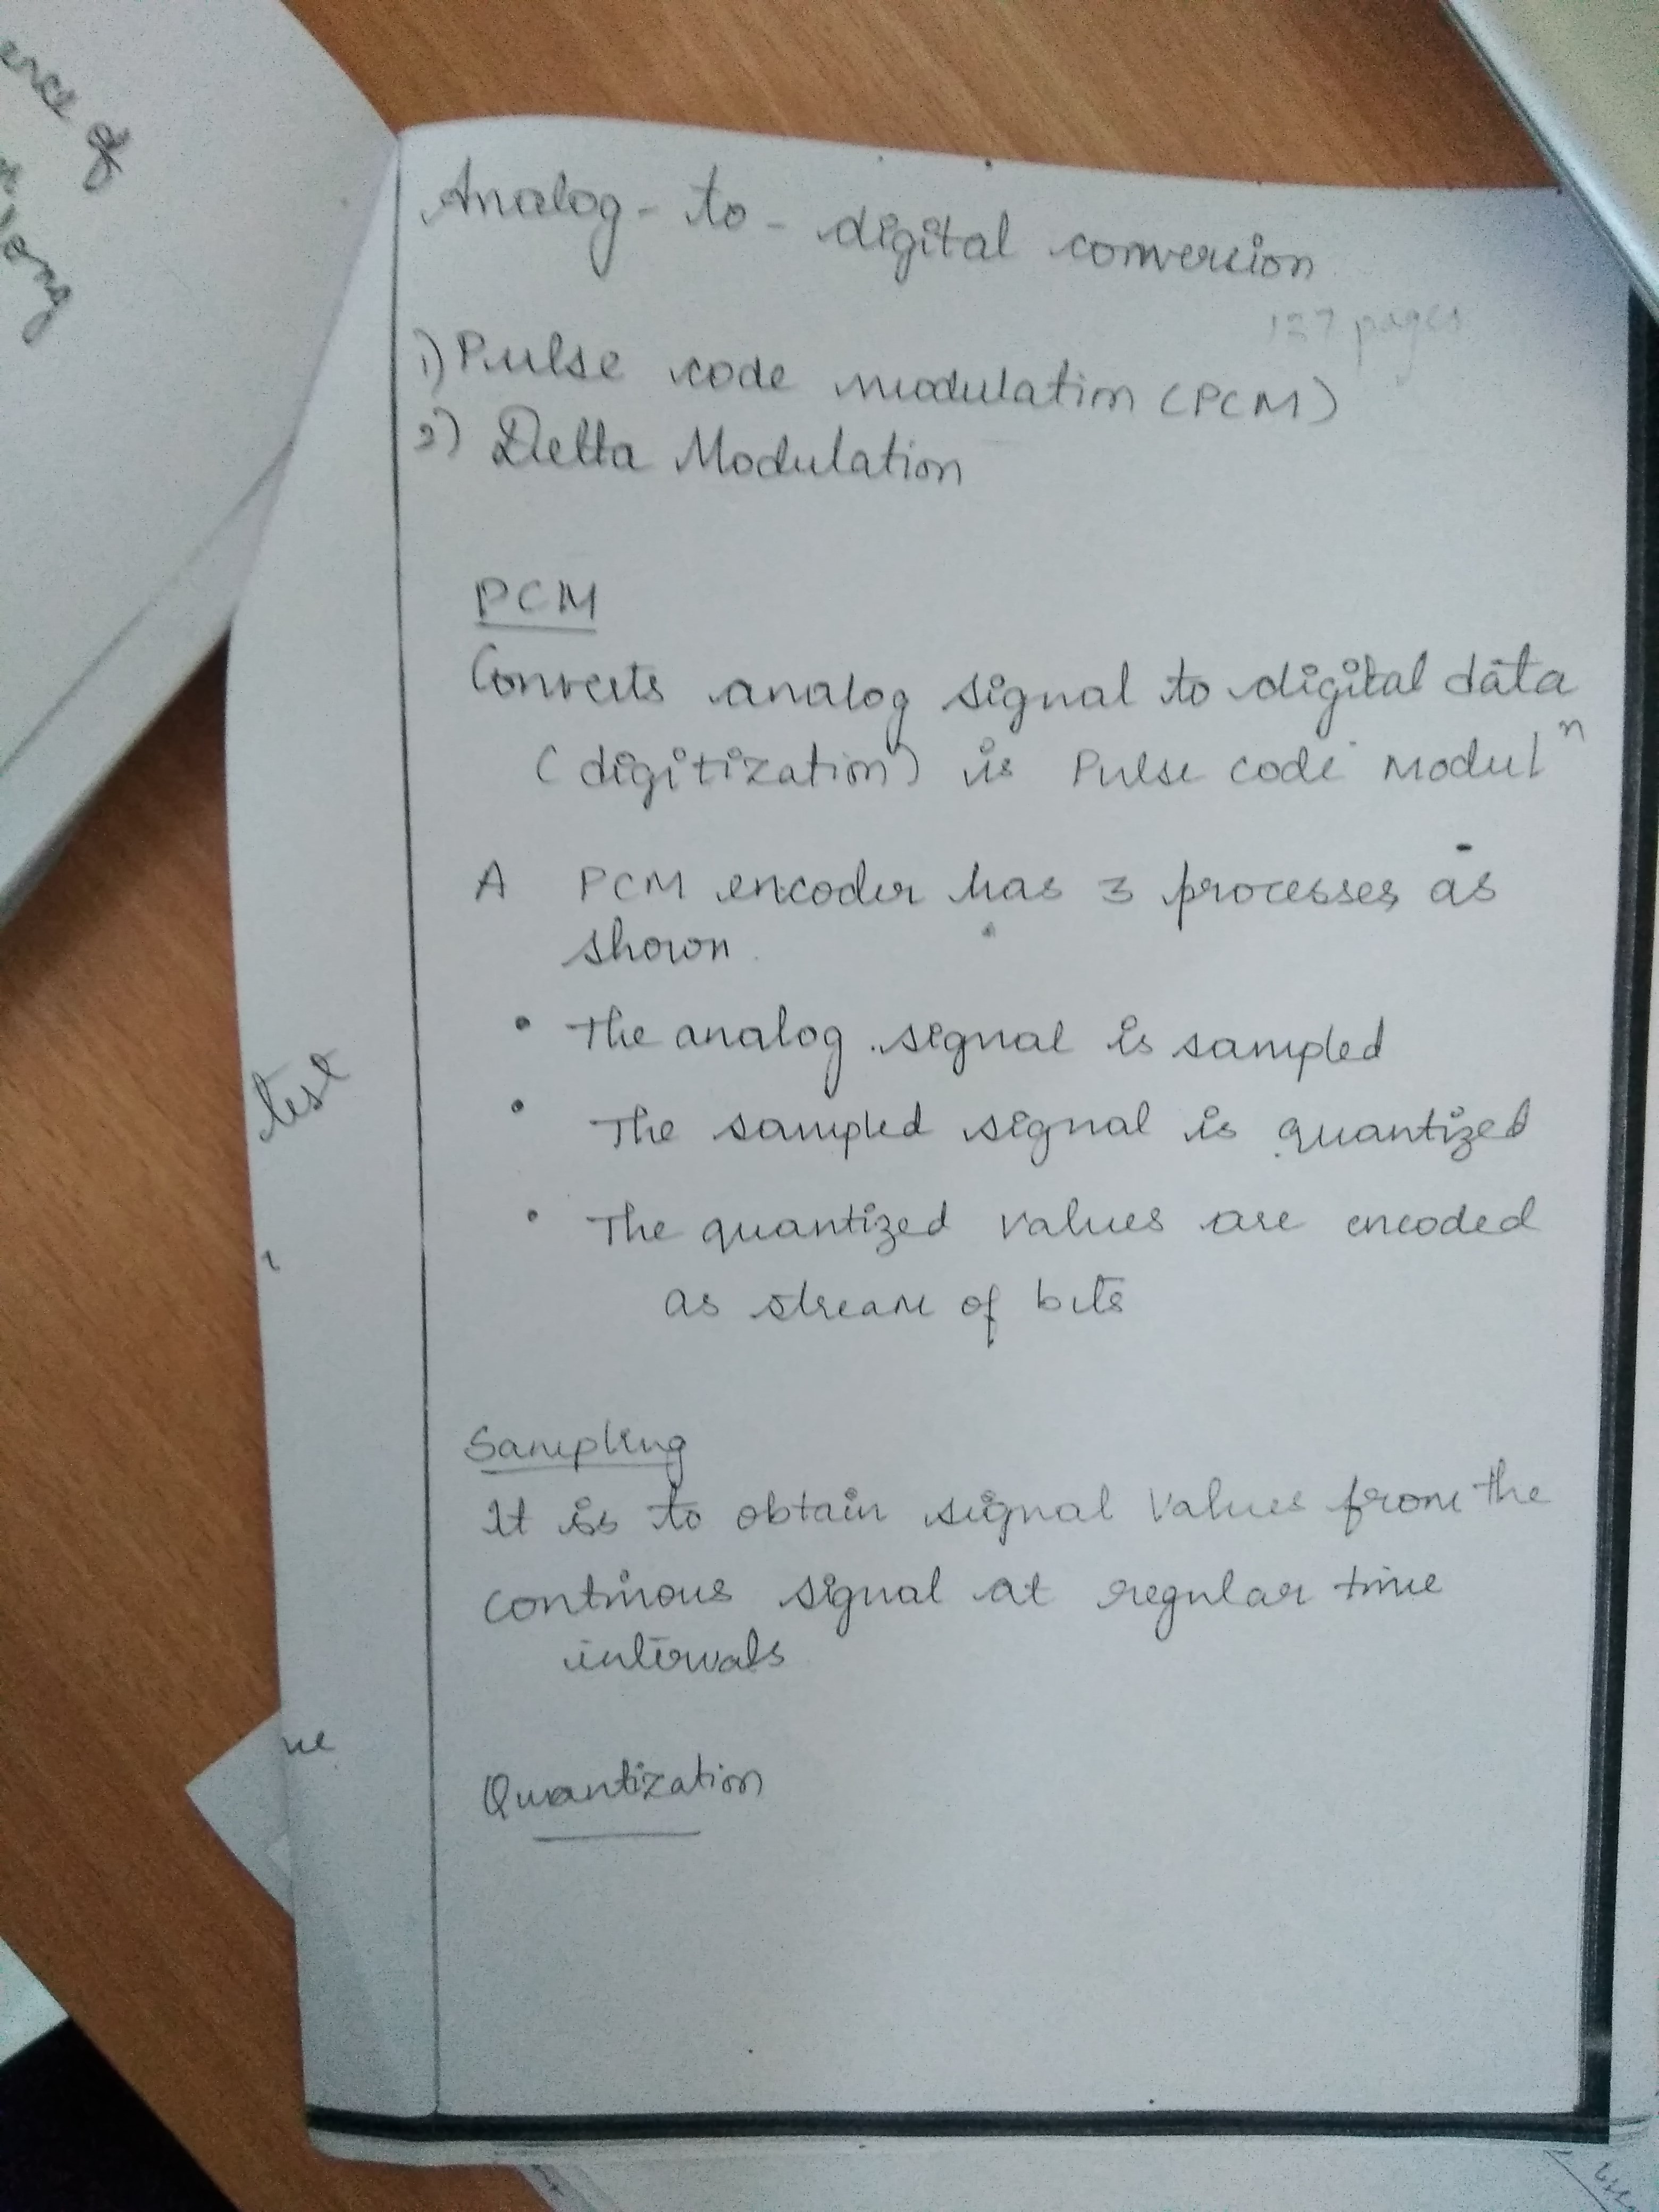 ence of
long
Analog - to - digital conversion
137 pages
1) Pulse code modulation (PCM)
2) Delta Modulation
PCM
Converts analog signal to digital data
(digitization) is Pulse code Modulⁿ
A PCM encoder has 3 processes as
shown.
• The analog signal is sampled
• The sampled signal is quantized
• The quantized values are encoded
as stream of bits
Sampling
It is to obtain signal values from the
continous signal at regular time
intervals
Quantization
test
ue